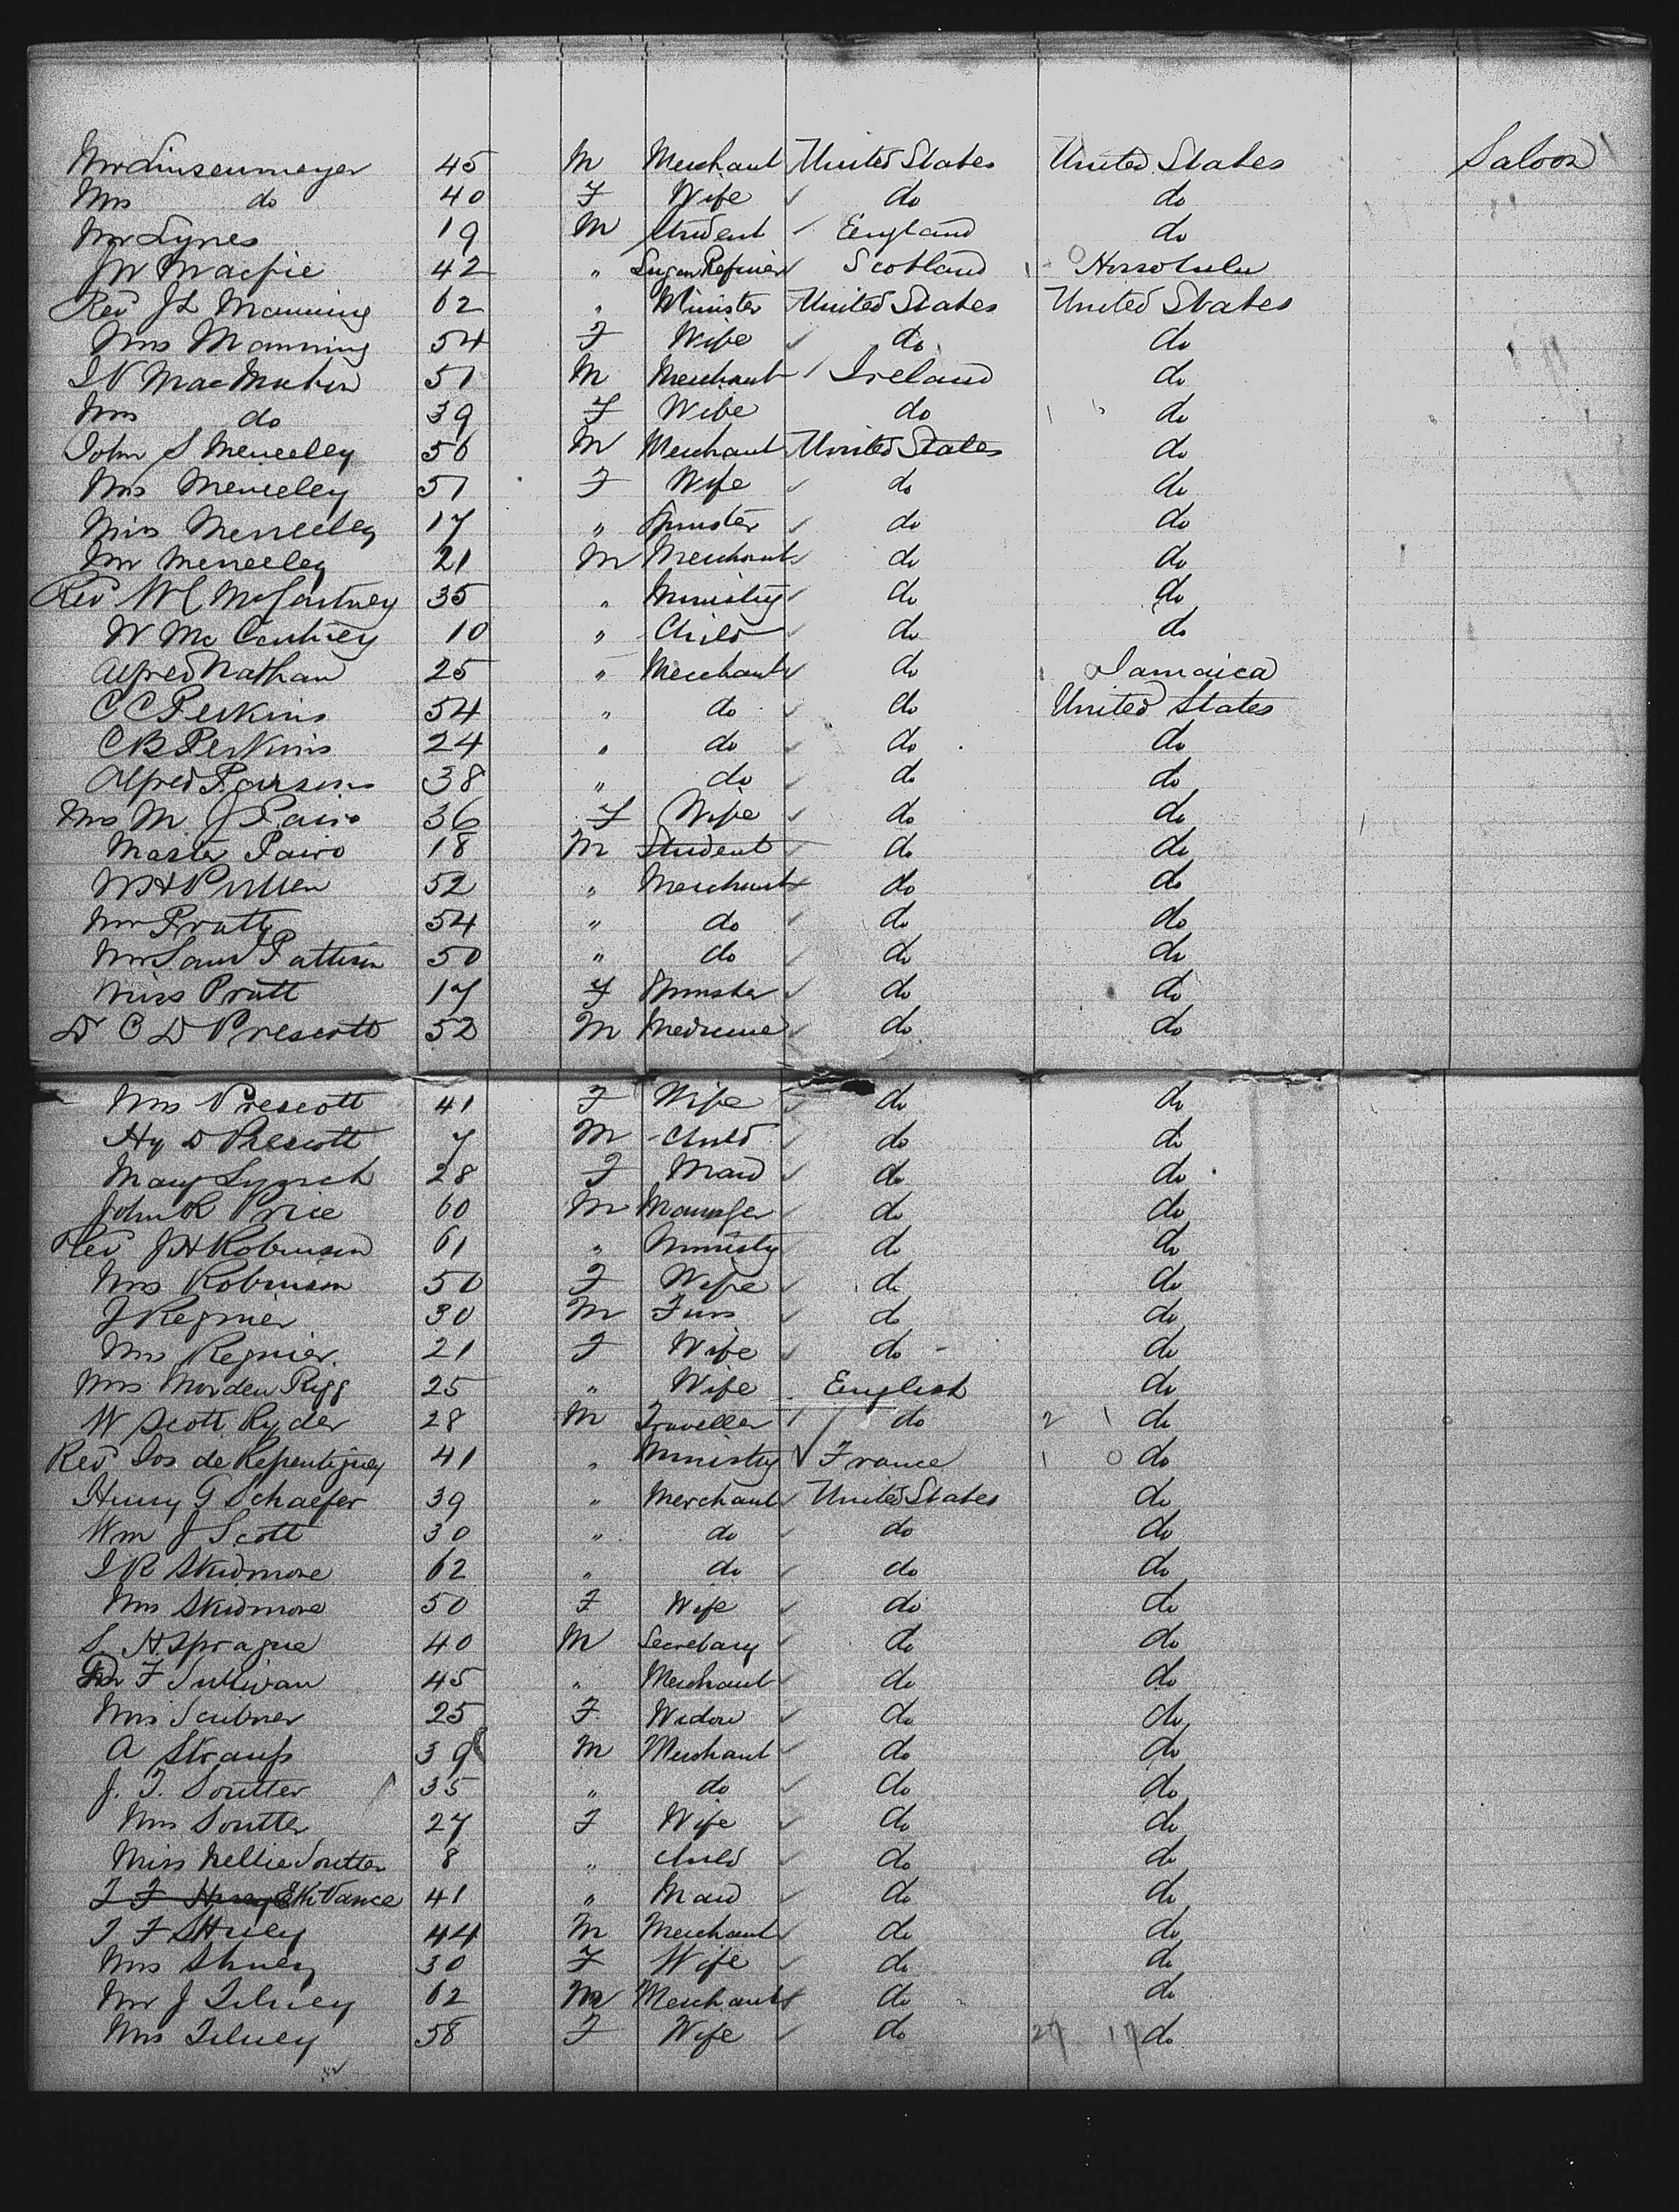 Mr Linsenmeyer 45 M Merchant United States United States Saloon
Mrs do 40 F Wife do do
Mr Lynes 19 M Student England do
JW Macfie 42 " Sugar Refiner Scotland Honolulu
Rev JL Manning 62 " Minister United States United States
Mrs Manning 54 F Wife do do
51 M Merchant Ireland do
Mrs do 39 F Wife do do
John S Meneeley 56 M Merchant United States do
Mrs Meneeley 51 F Wife do do
Miss Meneeley 17 " Spinster do do
Mr Meneeley 21 M Merchant do do
Rev WC McCartney 35 " Ministry do do
W McCartney 10 " Child do do
Alfred Nathan 25 " Merchant do Jamaica
C C Perkins 54 " do do United States
C B Perkins 24 " do do do
Alfred Parsons 38 " do do do
Mrs M J Pairo 36 F Wife do do
Master Pairo 18 M Student do do
WH Pullen 52 " Merchant do do
Mr Pratt 54 " do do do
Mr Saml Pattison 50 " do do do
Miss Pratt 17 F Spinster do do
Dr C D Prescott 52 M Medicine do do
Mrs Prescott 41 F Wife do do
Hy D Prescott 7 M Child do do
Mary Lynch 28 F Maid do do
John R Price 60 M Manager do do
Rev JH Robinson 61 " Ministry do do
Mrs Robinson 50 F Wife do do
J Regnier 30 M Furs do do
Mrs Regnier 21 F Wife do do
Mrs Morden Rigg 25 " Wife English do
W Scott Ryder 28 M Traveller do 2 1 do
Rev Jos. de Repentigney 41 " Ministry France 1 0 do
Henry G Schaefer 39 " Merchant United States do
Wm J Scott 30 " do do do
J R Skidmore 62 " do do do
Mrs Skidmore 50 F Wife do do
S. H Sprague 40 M Secretary do do
F Sullivan 45 " Merchant do do
Mrs Scribner 25 F Widow do do
A Strauss 39 M Merchant do do
J. T. Soutter 35 " do do do
Mrs Soutter 27 F Wife do do
Miss Nellie Soutter 8 " Child do do
Vance 41 " Maid do do
T F Shuey 44 M Merchant do do
Mrs Shuey 30 F Wife do do
Mr J Tilney 62 M Merchant do do
Mrs Tilney 58 F Wife do 27 17 do